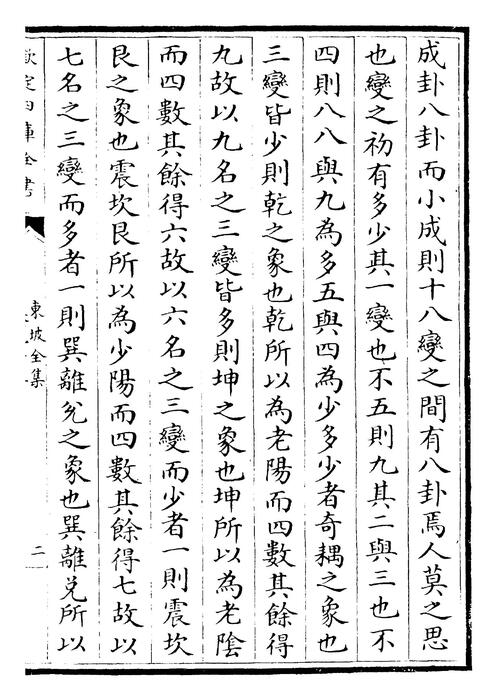 成卦八卦而小成則十八變之間有八卦焉人莫之思
也變之初有多少其一變也不五則九其二與三也不
四則八八與九為多五與四為少多少者奇耦之象也
三變皆少則乾之象也乾所以為老陽而四數其餘得
九故以九名之三變皆多則坤之象也坤所以為老陰
而四數其餘得六故以六名之三變而少者一則震坎
艮之象也震坎艮所以為少陽而四數其餘得七故以
七名之三變而多者一則巽離兌之象也巽離兌所以
欽定四庫全書
東坡全集
二